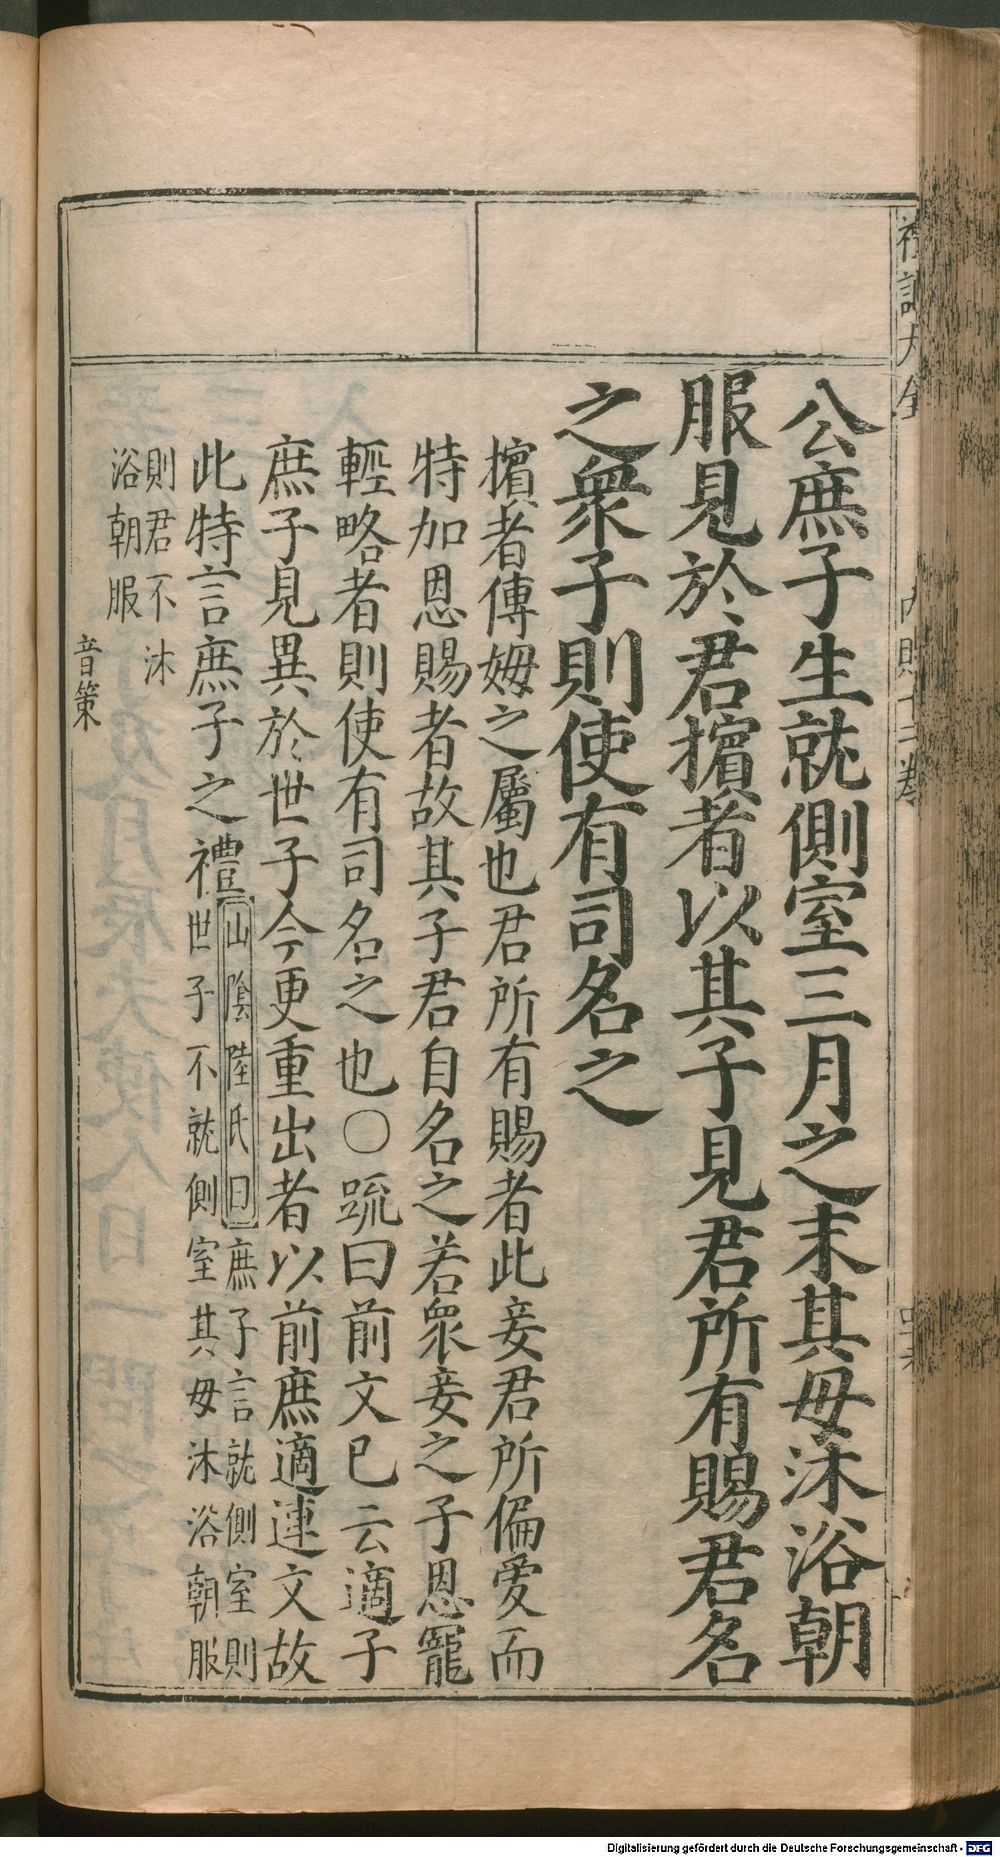 公庶子生就側室三月之末其母沐浴朝
服見於君擯者以其子見君所有賜君名
之衆子則使有司名之
擯者傳姆之屬也君所有賜者此妾君所偏愛而
特加恩賜者故其子君自名之若衆妾之子恩寵
輕略者則使有司名之也○疏曰前文已云適子
庶子見異於世子今更重出者以前庶適連文故
此特言庶子之禮
山陰陸氏曰庶子言就側室則
世子不就側室其母沐浴朝服
則君不沐
浴朝服
音策
禮記大全
內則十二卷
Digitalisierung gefördert durch die Deutsche Forschungsgemeinschaft - DFG